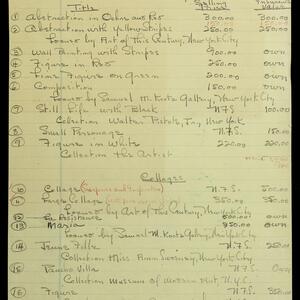 Title Selling Price Insurance Value
① Abstraction in Ochre and Red 300.00 300.00
② Abstraction with Yellow Stripes 250.00 250.00
Loaned by Art of This Century, New York City
③ Wall Painting with Stripes 900.00 own
④ Figure in Red 250.00 own
⑤ Figure on Green 200.00 own
⑥ Composition 150.00 own
Loaned by Samuel M. Kootz Gallery, New York City
⑦ Still Life with Black N.F.S. 100.00
Collection Walter, New York
⑧ Small Personage N.F.S. 150.00
⑨ Figure in White 220.00
Collection the Artist
Collages
10 Collage N.F.S. 500.00
11 Large Collage 350 350
Loaned by Art of This Century, New York City
12 Resistance 500.00 own
13 Maria 950.00 own
Loaned by Samuel M. Kootz Gallery, New York City
14 Jeune Fille N.F.S. 250.00
Collection Miss New York City
15 Pancho Villa N.F.S. Own
Collection Museum of Modern Art, N.Y.C.
16 Figure N.F.S. 350